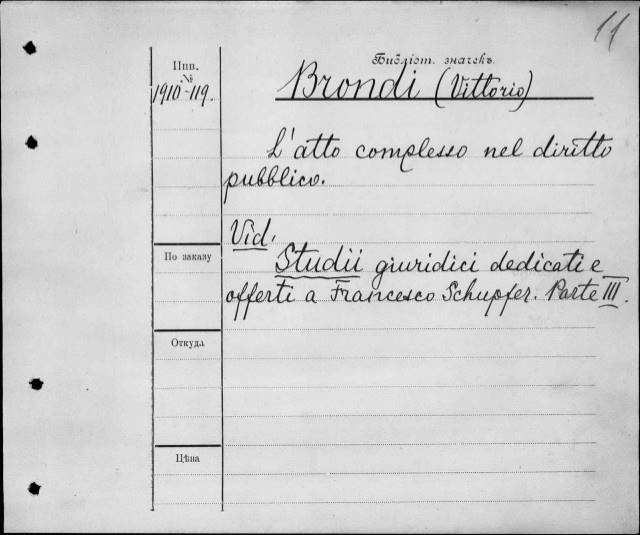 11
Инв.
№
1910-119.
Библіот. значекъ
Brondi (Vittorio)
L'atto complesso nel diritto
pubblico.
Vid.
Studii giuridici dedicati e
offerti a Francesco Schupfer. Parte III.
По заказу
Откуда
Цѣна